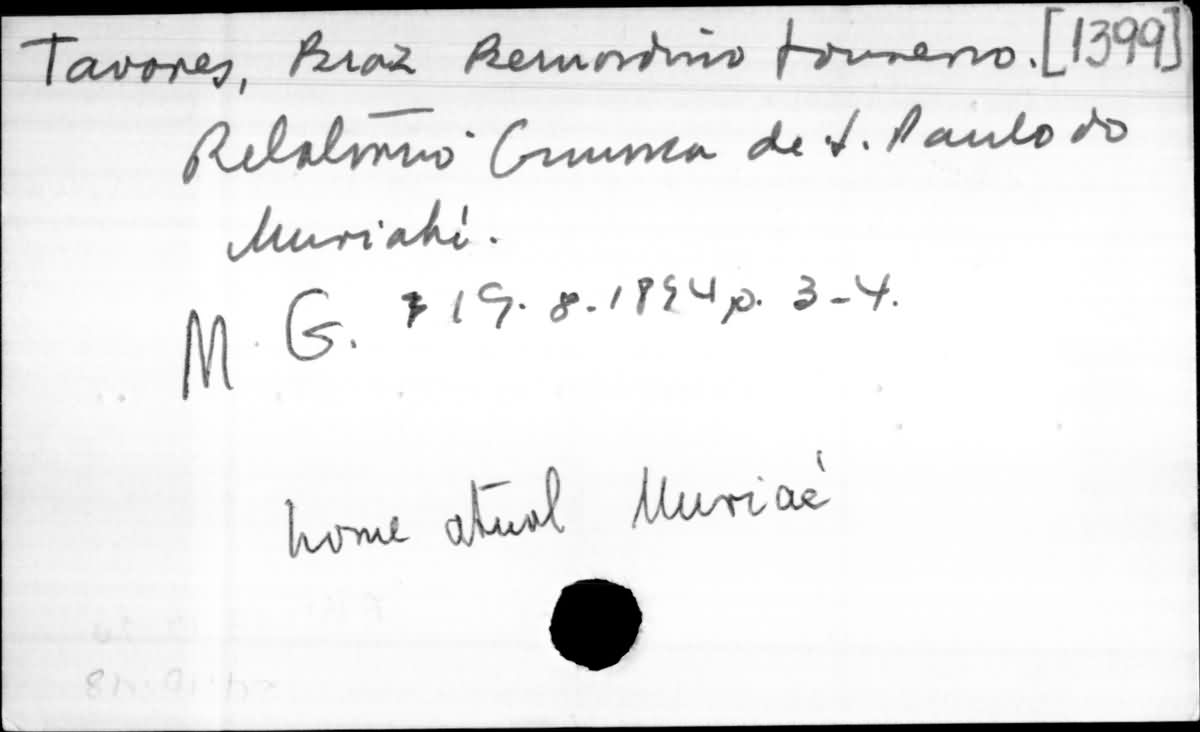 Tavares, Braz Bernardino Loureiro. [1399]
Relatório Comarca de S. Paulo do
Muriahé.
M. G. 19. 8. 1894 p. 3-4.
nome atual Muriaé